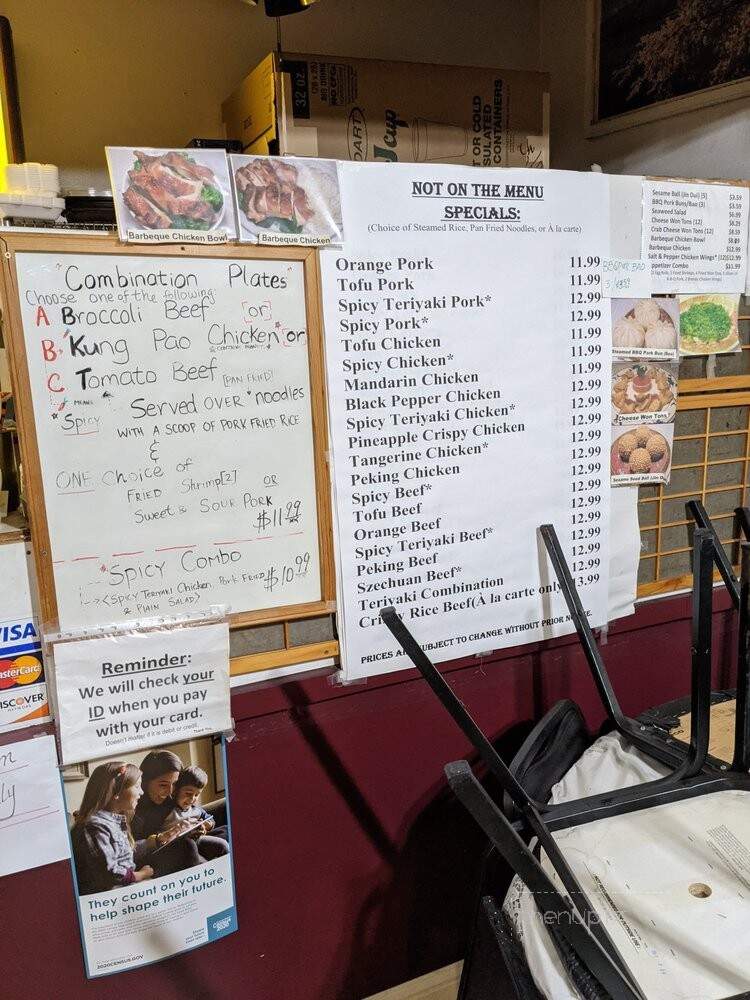 32 oz.
DART
J cup
T OR COLD
SULATED
CONTAINERS
Barbeque Chicken Bowl
Barbeque Chicken
Combination Plates
Choose one of the following:
A Broccoli Beef [or]
B. Kung Pao Chicken [or]
C Tomato Beef [PAN FRIED]
MEANS
Spicy
Served OVER noodles
WITH A SCOOP OF PORK FRIED RICE
&
ONE Choice of
FRIED Shrimp[2] OR
Sweet & SOUR PORK
$11.99
SPICY COMBO
<SPICY TERIYAKI CHICKEN, PORK FRIED $10.99
& PLAIN SALAD>
NOT ON THE MENU
SPECIALS:
(Choice of Steamed Rice, Pan Fried Noodles, or À la carte)
Orange Pork 11.99
Tofu Pork 11.99
Spicy Teriyaki Pork* 12.99
Spicy Pork* 11.99
Tofu Chicken 11.99
Spicy Chicken* 11.99
Mandarin Chicken 12.99
Black Pepper Chicken 12.99
Spicy Teriyaki Chicken* 12.99
Pineapple Crispy Chicken 12.99
Tangerine Chicken* 12.99
Peking Chicken 12.99
Spicy Beef* 12.99
Tofu Beef 12.99
Orange Beef 12.99
Spicy Teriyaki Beef* 12.99
Peking Beef 12.99
Szechuan Beef* 12.99
Teriyaki Combination 12.99
Crispy Rice Beef(À la carte only) 13.99
PRICES ARE SUBJECT TO CHANGE WITHOUT PRIOR NOTICE.
Sesame Ball (Jin Dui) [5] $3.59
BBQ Pork Buns/Bao (3) $3.59
Seaweed Salad $6.99
Cheese Won Tons (12) $8.29
Crab Cheese Won Tons (12) $8.59
Barbeque Chicken Bowl
Barbeque Chicken $12.99
Salt & Pepper Chicken Wings* (12) $12.99
Appetizer Combo $11.99
BBQ PORK BAO
Steamed BBQ Pork Bun (Bao)
Cheese Won Tons
Sesame Seed Ball (Jin D
VISA
MasterCard
DISCOVER
Reminder:
We will check your
ID when you pay
with your card.
Doesn't matter if it is debit or credit.
Thank You
ly
They count on you to
help shape their future.
2020CENSUS.GOV
Census
2020
menupix